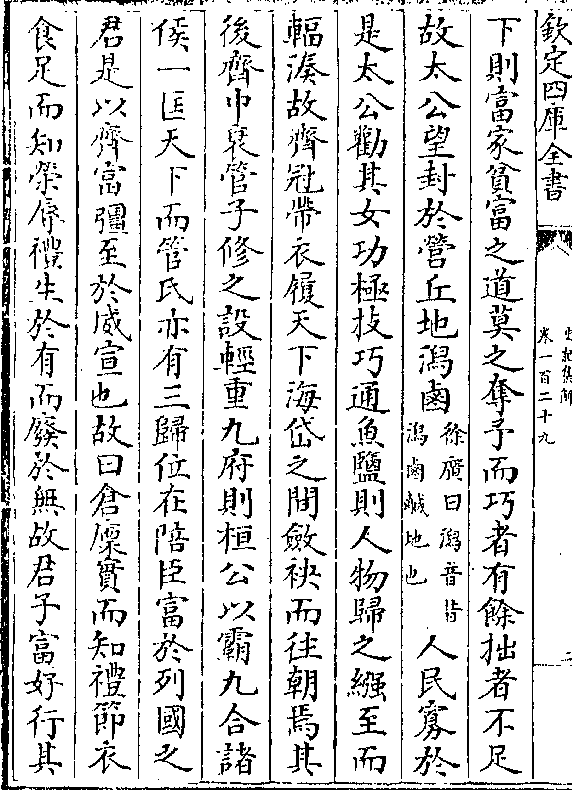 欽定四庫全書
史記集解
卷一百二十九
二
下則富家貧富之道莫之奪予而巧者有餘拙者不足
故太公望封於營丘地潟鹵徐廣曰潟音昔潟鹵鹹地也人民寡於
是太公勸其女功極技巧通魚鹽則人物歸之繦至而
輻湊故齊冠帶衣履天下海岱之間斂袂而往朝焉其
後齊中衰管子修之設輕重九府則桓公以霸九合諸
侯一匡天下而管氏亦有三歸位在陪臣富於列國之
君是以齊富彊至於威宣也故曰倉廩實而知禮節衣
食足而知榮辱禮生於有而廢於無故君子富好行其